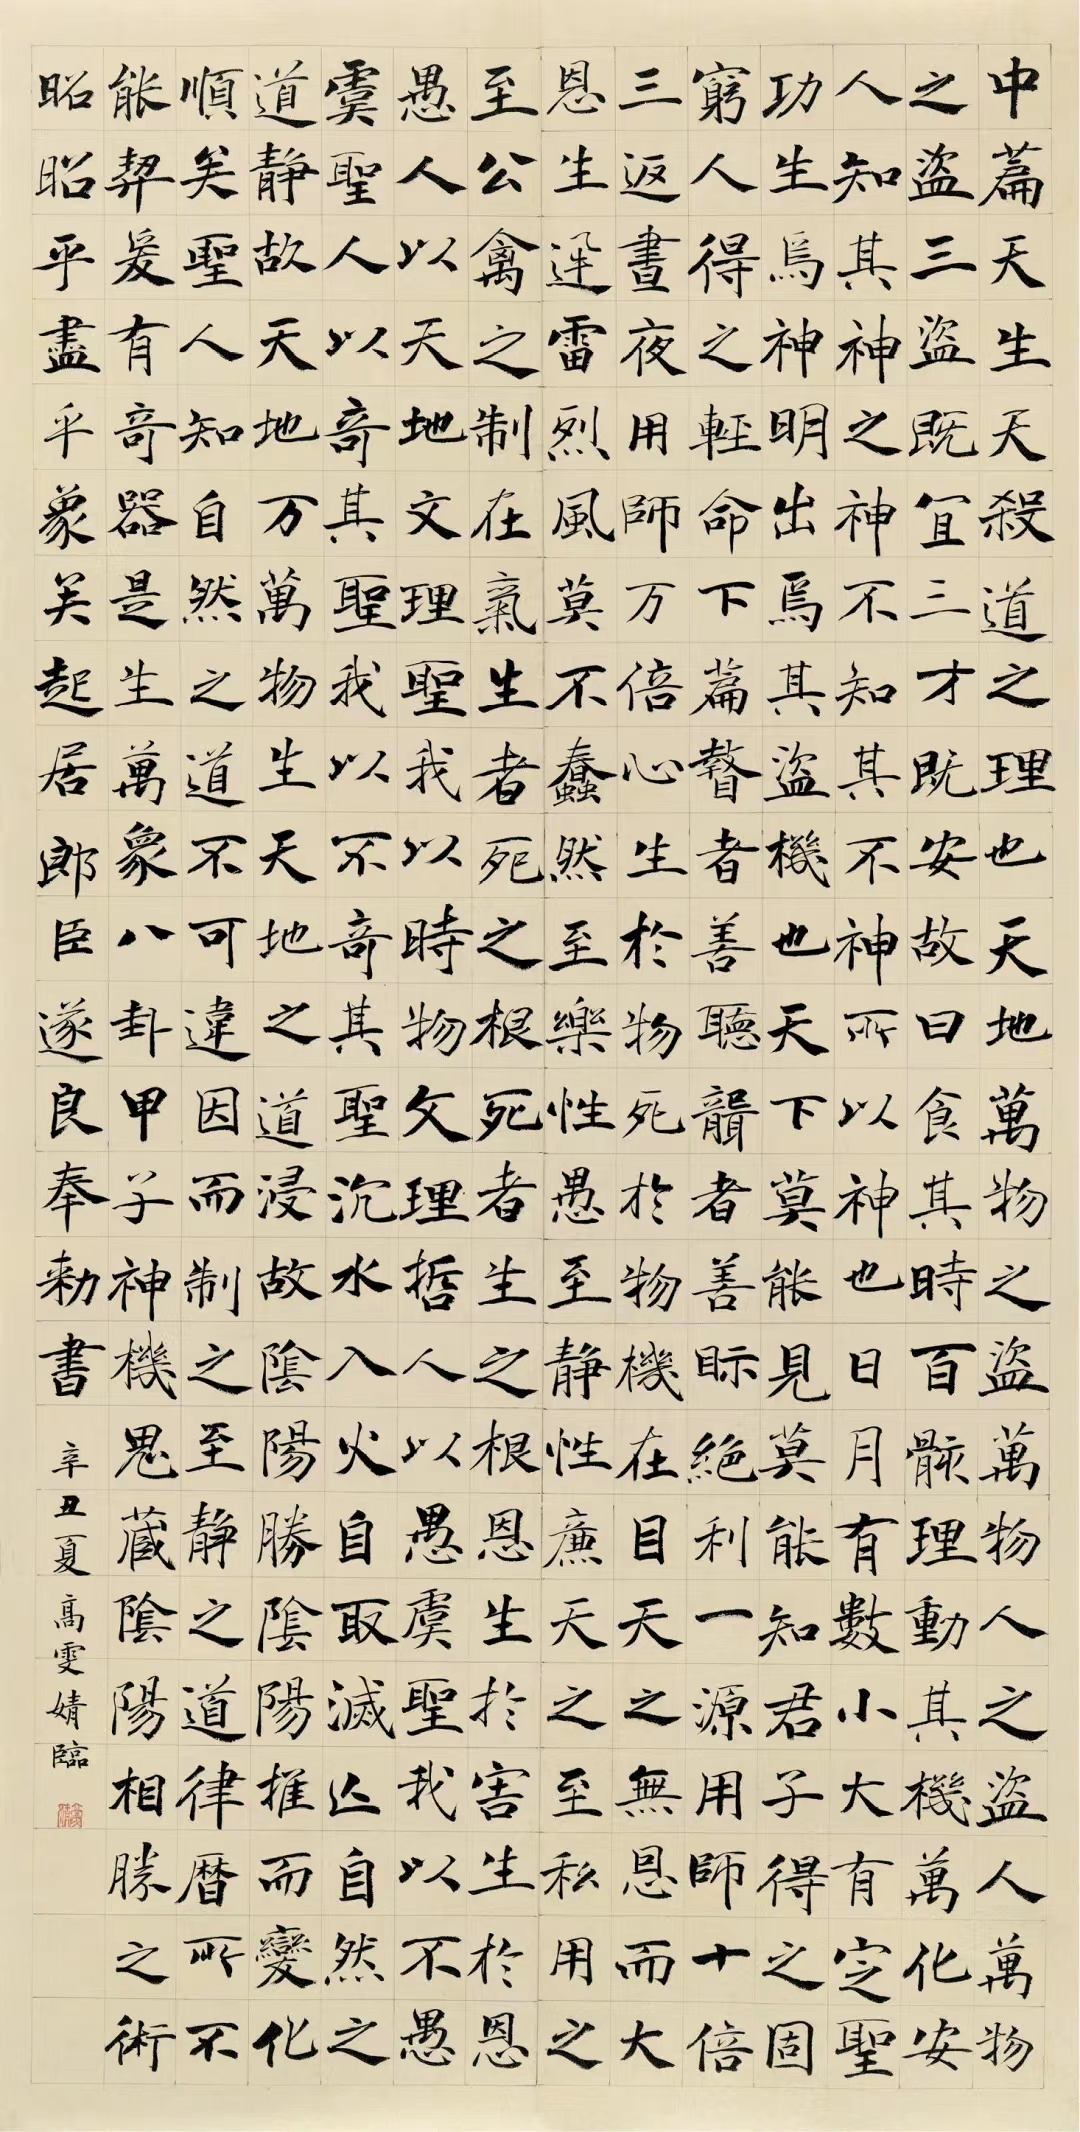 中篇天生天殺道之理也天地萬物之盜萬物人之盜人萬物
之盜三盜既宜三才既安故曰食其時百骸理動其機萬化安
人知其神之神不知其不神所以神也日月有數小大有定聖
功生焉神明出焉其盜機也天下莫能見莫能知君子得之固
窮人得之輕命下篇瞽者善聽聾者善眎絕利一源用師十倍
三返晝夜用師万倍心生於物死於物機在目天之無恩而大
恩生迅雷烈風莫不蠢然至樂性愚至靜性廉天之至私用之
至公禽之制在氣生者死之根死者生之根恩生於害生於恩
愚人以天地文理聖我以時物文理哲人以愚虞聖我以不愚
虞聖人以奇其聖我以不奇其聖沉水入火自取滅亡自然之
道靜故天地万萬物生天地之道浸故陰陽勝陰陽推而變化
順矣聖人知自然之道不可違因而制之至靜之道律曆所不
能契爰有奇器是生萬象八卦甲子神機鬼藏陰陽相勝之術
昭昭乎盡乎象矣起居郎臣遂良奉勅書
辛丑夏高雯婧臨